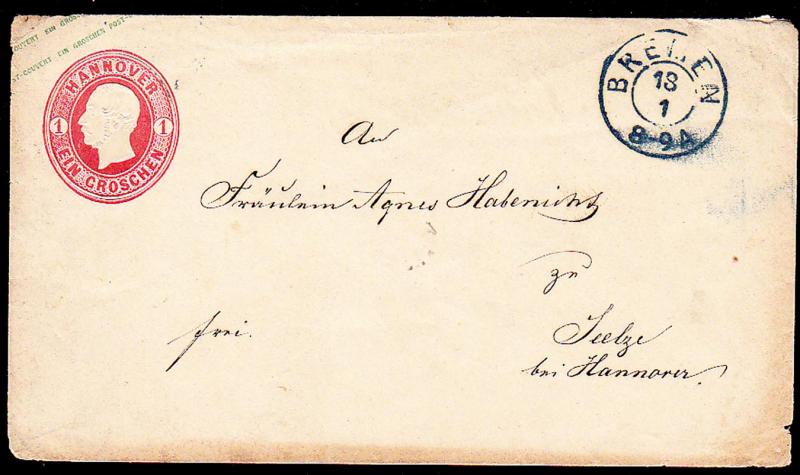 COUVERT EIN GROS
ST-COUVERT EIN GROSCHEN POST-
HANNOVER
1 1
EIN GROSCHEN
BREMEN
18
1
8-9A
An
Fräulein Agnes Habenicht
zu
frei.
Seelze
bei Hannover.